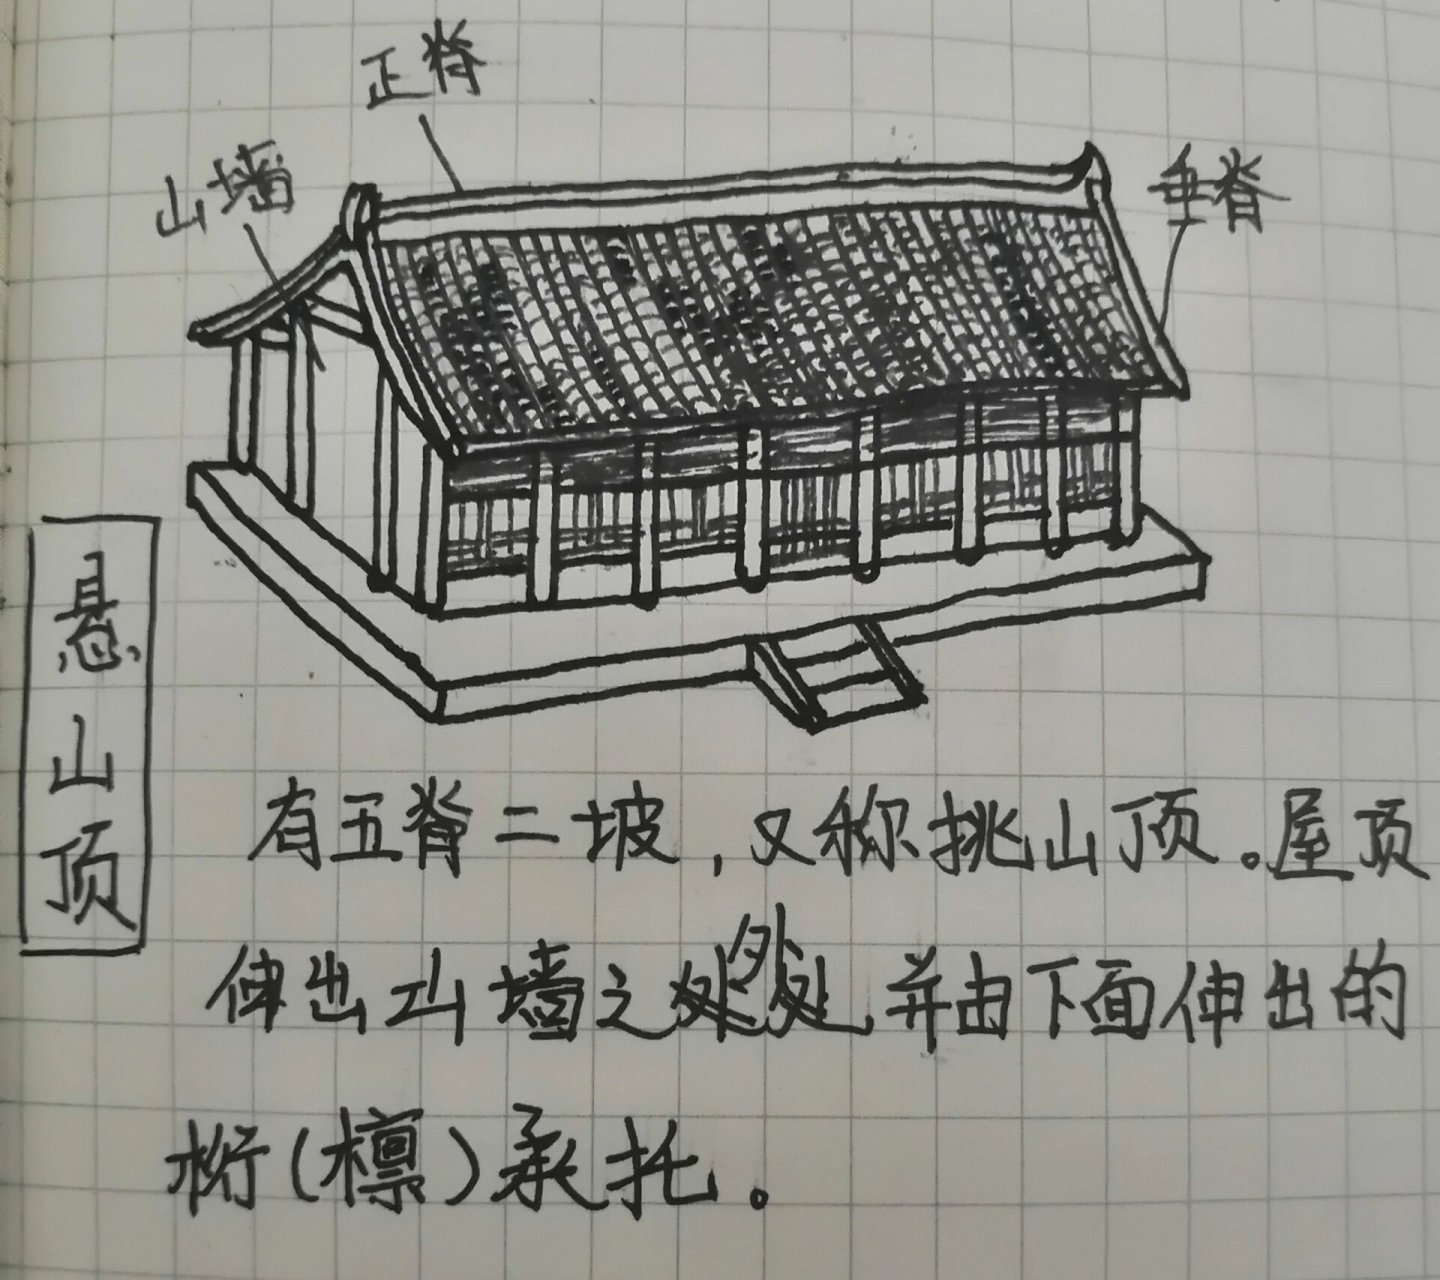 正脊
山墙
垂脊
悬山顶
有五脊二坡，又称挑山顶。屋顶
伸出山墙之外处，并由下面伸出的
桁(檩)承托。